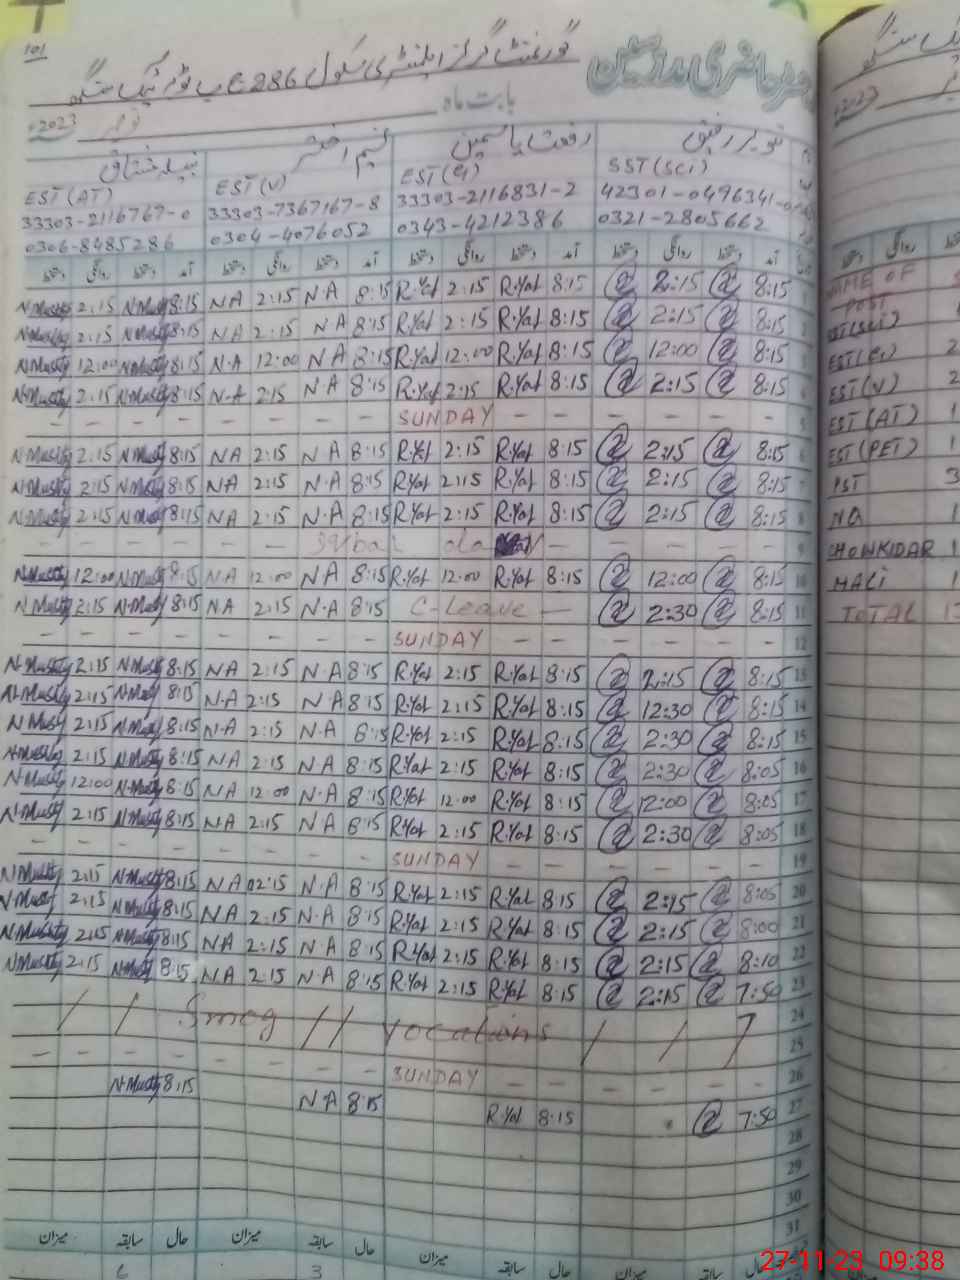 101
گورنمنٹ گرلز ایلیمنٹری سکول 286 گ ب ٹوبہ ٹیک سنگھ
رجسٹر حاضری مدرسین
2023ء نومبر بابت ماہ
نبیلہ مشتاق نسیم اختر رفعت یاسمین تنویر رفیق
EST (AT) EST (V) EST (E) SST (SCI)
33303-2116767-0 33303-7367167-8 33303-2116831-2 42301-0496341-
0306-8485286 0304-4076052 0343-4212386 0321-2805662
دستخط روانگی دستخط آمد دستخط روانگی دستخط آمد دستخط روانگی دستخط آمد دستخط روانگی دستخط آمد
N-Mushtq 2:15 N-Mushtq 8:15 N A 2:15 N A 8:15 R.Yaf 2:15 R.Yaf 8:15 2:15 8:15 1
N-Mushtq 2:15 N-Mushtq 8:15 N A 2:15 N A 8:15 R.Yaf 2:15 R.Yaf 8:15 2:15 8:15 2
N-Mushtq 12:00 N-Mushtq 8:15 N-A 12:00 N A 8:15 R.Yaf 12:00 R.Yaf 8:15 12:00 8:15 3
N-Mushtq 2:15 N-Mushtq 8:15 N-A 2:15 N A 8:15 R.Yaf 2:15 R.Yaf 8:15 2:15 8:15 4
– – – – – – – – SUNDAY – – – – – – 5
N-Mushtq 2:15 N-Mushtq 8:15 N A 2:15 N A 8:15 R.Yaf 2:15 R.Yaf 8:15 2:15 8:15 6
N-Mushtq 2:15 N-Mushtq 8:15 N A 2:15 N-A 8:15 R.Yaf 2:15 R.Yaf 8:15 2:15 8:15 7
N-Mushtq 2:15 N-Mushtq 8:15 N A 2:15 N-A 8:15 R.Yaf 2:15 R.Yaf 8:15 2:15 8:15 8
– – – – – – Iqbal day – – – – – 9
N-Mushtq 12:00 N-Mushtq 8:15 N A 12:00 N A 8:15 R.Yaf 12:00 R.Yaf 8:15 12:00 8:15 10
N-Mushtq 2:15 N-Mushtq 8:15 N A 2:15 N-A 8:15 C-Leave — 2:30 8:15 11
– – – – – – – – SUNDAY – – – – – – 12
N-Mushtq 2:15 N-Mushtq 8:15 N A 2:15 N-A 8:15 R.Yaf 2:15 R.Yaf 8:15 2:15 8:15 13
N-Mushtq 2:15 N-Mushtq 8:15 N-A 2:15 N A 8:15 R.Yaf 2:15 R.Yaf 8:15 12:30 8:15 14
N-Mushtq 2:15 N-Mushtq 8:15 N-A 2:15 N-A 8:15 R.Yaf 2:15 R.Yaf 8:15 2:30 8:15 15
N-Mushtq 2:15 N-Mushtq 8:15 N A 2:15 N A 8:15 R.Yaf 2:15 R.Yaf 8:15 2:30 8:05 16
N-Mushtq 12:00 N-Mushtq 8:15 N A 12:00 N-A 8:15 R.Yaf 12:00 R.Yaf 8:15 12:00 8:05 17
N-Mushtq 2:15 N-Mushtq 8:15 N-A 2:15 N A 8:15 R.Yaf 2:15 R.Yaf 8:15 2:30 8:05 18
– – – – – – – – SUNDAY – – – – – – 19
N-Mushtq 2:15 N-Mushtq 8:15 N A 02:15 N-A 8:15 R.Yaf 2:15 R.Yaf 8:15 2:15 8:05 20
N-Mushtq 2:15 N-Mushtq 8:15 N A 2:15 N-A 8:15 R.Yaf 2:15 R.Yaf 8:15 2:15 8:00 21
N-Mushtq 2:15 N-Mushtq 8:15 N A 2:15 N A 8:15 R.Yaf 2:15 R.Yaf 8:15 2:15 8:10 22
N-Mushtq 2:15 N-Mushtq 8:15 N A 2:15 N-A 8:15 R.Yaf 2:15 R.Yaf 8:15 2:15 7:50 23
24
/ / Smog // vocations / / 25
– – – – – – – – SUNDAY – – – – – – 26
N-Mushtq 8:15 N A 8:15 R.Yaf 8:15 7:50 27
28
29
30
31
میزان سابقہ حال میزان سابقہ حال میزان سابقہ حال میزان
6 3
2023ء
NAME OF POST
SST(SCI) 1
EST(E) 2
EST(V) 2
EST(AT) 1
EST(PET) 1
PST 3
NQ 1
CHOWKIDAR 1
MALI 1
TOTAL 13
27-11-23 09:38